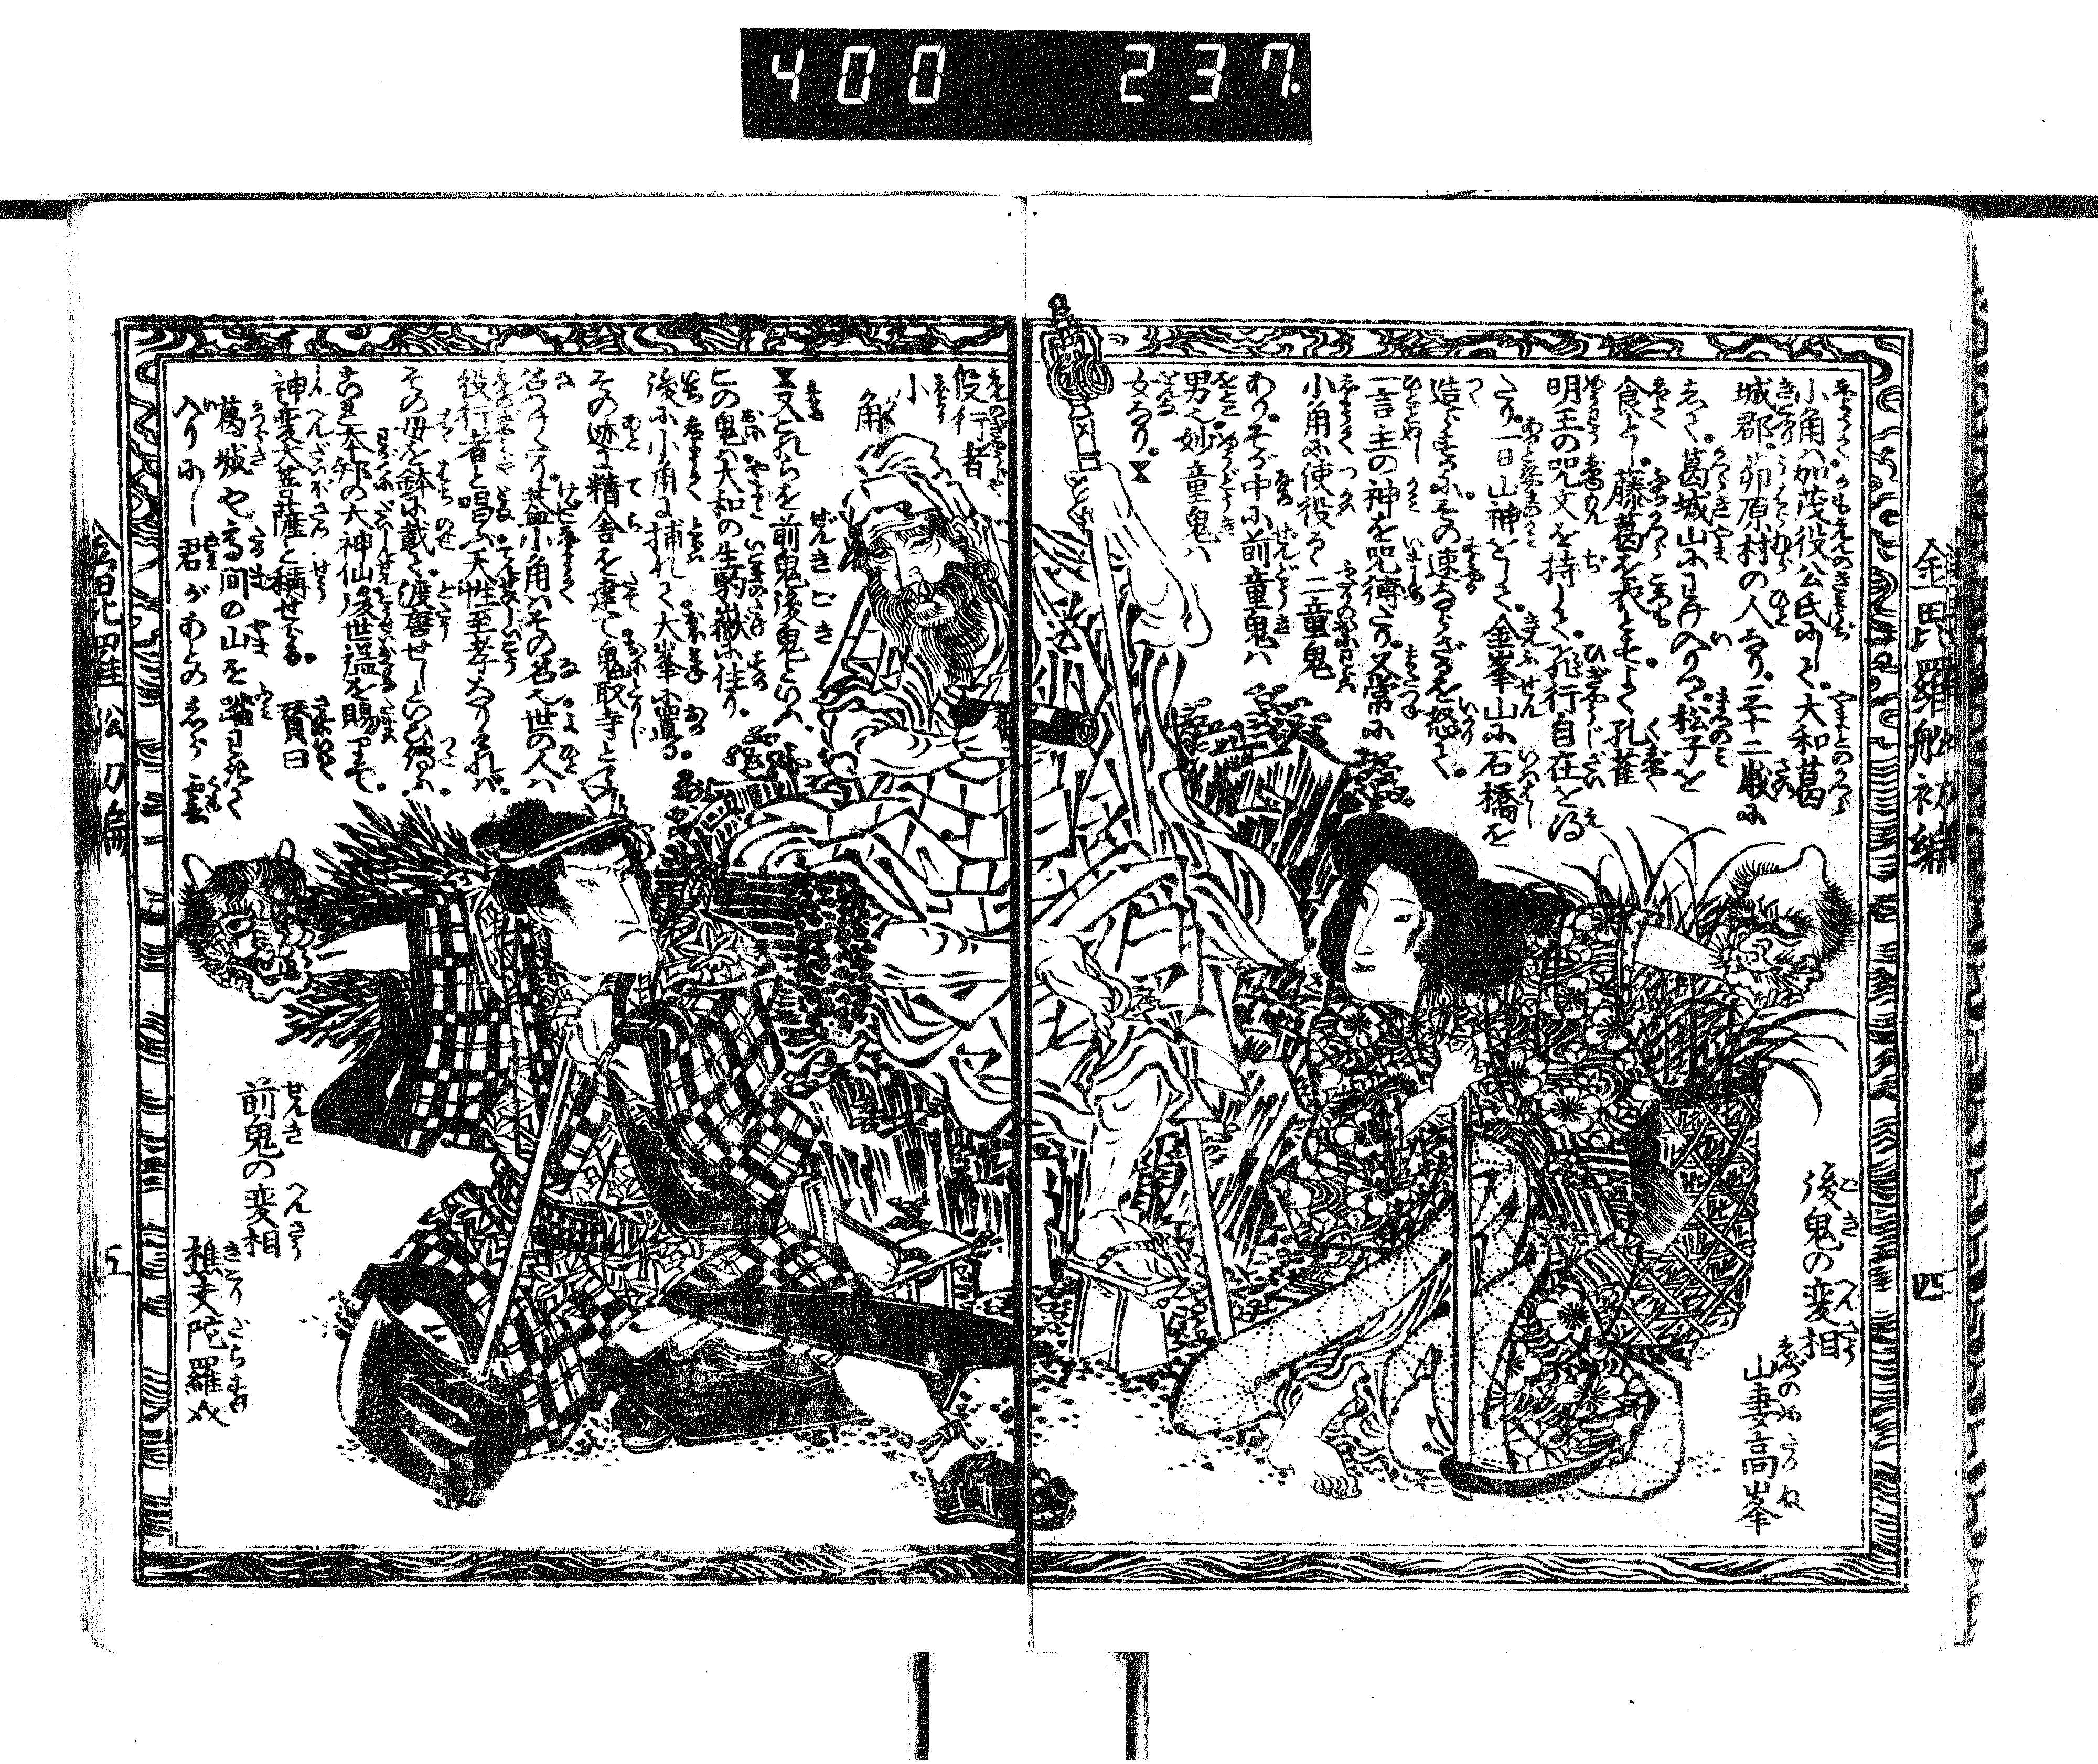 400 237.
金毘羅舩初編
四
小角ハ加茂役公氏にして。大和葛
城郡。茆原村の人なり。三十二歳に
して。葛城山にわけ入りつ。松子を
食とし。藤葛を衣として。孔雀
明王の咒文を持して。飛行自在を得
たり。一日山神をして。金峯山に石橋を
造らするに。その速ならざるを怒て。
一言主の神を咒縛せり。又常に
小角に使役るゝ二童鬼
あり。そが中に前童鬼ハ
男也妙童鬼ハ
女なり。
後鬼の変相
山妻高峯
役行者
小角
又これらを前鬼後鬼といふ。
この鬼ハ大和の生駒嶽に住り。
後に小角に捕れて大峯に置る。
その迹に精舎を建て鬼取寺と
名つけたり。蓋小角ハその名也世の人ハ
役行者と唱ふ天性至孝なりけれバ。
その母を鉢に戴て渡唐せしといひ傳ふ。
吉本邦の大神仙後世謚を賜りて。
神変大菩薩と稱せらる。 賛曰
葛城や高間の山を踏わけて
入りにし君があとのしら雲
前鬼の変相
樵夫陀羅丸
金毘羅舩初編
五